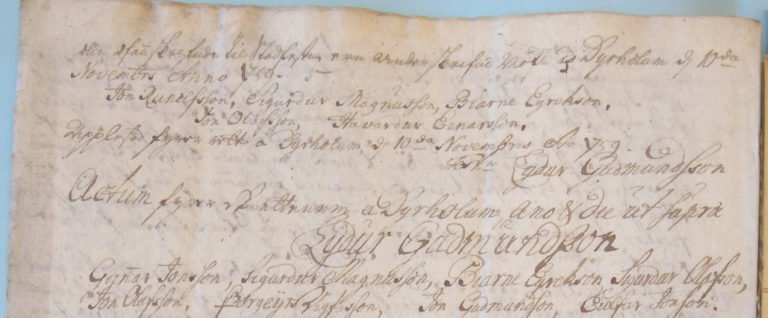 ollu ofanskrifudu til Stadfestu eru under skrifud Note a Dyrholum d 10da
Novembris Anno 1759.
Jon Runolfsson, Sigurdur Magnusson, Biarne Eyrekson,
Jon Olafsson, Havardur Einarsson,
Upplesed fyrer rette a Dyrholum, d 10da Novembris Ao 1759
Eydur Gudmundsson
Actum fyrer Rettenum a Dyrholum Ano & die ut supra
Eydur Gudmundsson
Gunar Jonsson, Sigurdur Magnusson, Biarne Eyrekson Sigurdur Olafsson,
Jon Olafsson, Þorgeyr Vigfusson, Jon Gudmundson, Jonson.